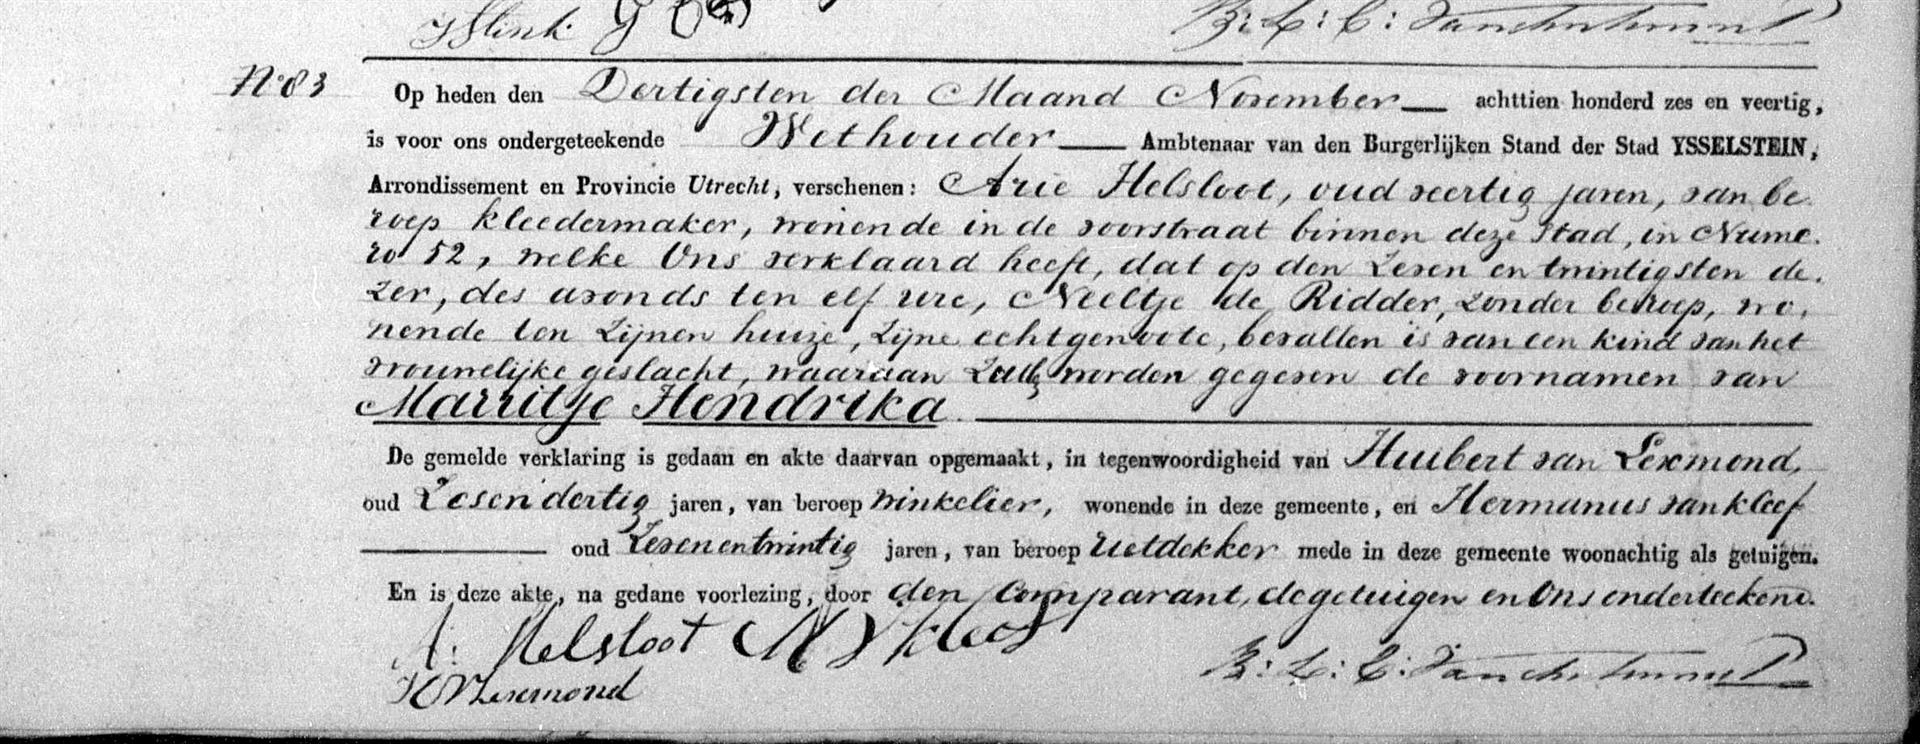 N°83
Op heden den Dertigsten der Maand November achttien honderd zes en veertig,
is voor ons ondergeteekende Wethouder Ambtenaar van den Burgerlijken Stand der Stad YSSELSTEIN,
Arrondissement en Provincie Utrecht, verschenen: Arie Helsloot, oud veertig jaren, van be
roep kleedermaker, wonende in de voorstraat binnen deze Stad, in Nume.
ro 52, welke Ons verklaard heeft, dat op den Zeven en twintigsten de.
zer, des avonds ten elf ure, Neeltje de Ridder, zonder beroep, wo.
nende ten Zijnen huize, Zijne echtgenoote, bevallen is van een kind van het
vrouwelijke geslacht, waaraan Zal worden gegeven de voornamen van
Marritje Hendrika
De gemelde verklaring is gedaan en akte daarvan opgemaakt, in tegenwoordigheid van Huibert van Lexmond,
oud Zesendertig jaren, van beroep winkelier, wonende in deze gemeente, en Hermanus van Kleef
oud Zevenentwintig jaren, van beroep rietdekker mede in deze gemeente woonachtig als getuigen.
En is deze akte, na gedane voorlezing, door den Comparant, de getuigen en Ons onderteekend.
A: Helsloot H V Kleef
H V Lexmond